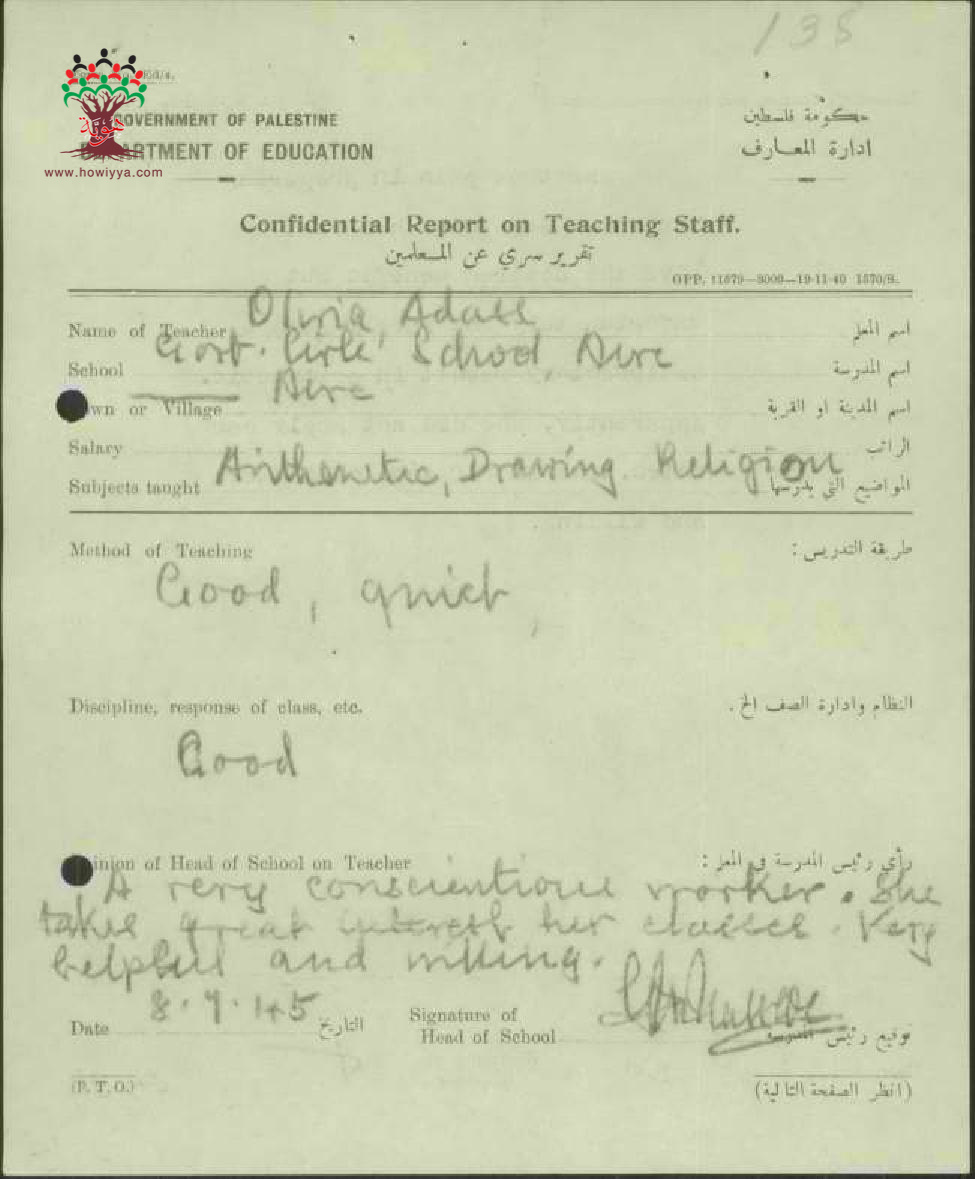 138
Ed/s.
GOVERNMENT OF PALESTINE
حكومة فلسطين
DEPARTMENT OF EDUCATION
ادارة المعارف
www.howiyya.com
Confidential Report on Teaching Staff.
تقرير سري عن المعلمين
GPP. 11679—3000—19-11-40 1570/S.
Name of Teacher Olivia Adass اسم المعلم
School Govt. Girls' School, Acre اسم المدرسة
Town or Village Acre اسم المدينة او القرية
Salary الراتب
Subjects taught Arithmetic, Drawing Religion المواضيع التي يدرسها
Method of Teaching طريقة التدريس :
Good, quiet,
Discipline, response of class, etc. النظام وادارة الصف الخ .
Good
Opinion of Head of School on Teacher رأي رئيس المدرسة في المعلم :
A very conscientious worker. She
takes great interest her classes. Very
helpful and willing.
Date 8.7.45 التاريخ
Signature of
Head of School توقيع رئيس المدرسة
(P. T. O.) (انظر الصفحة التالية)